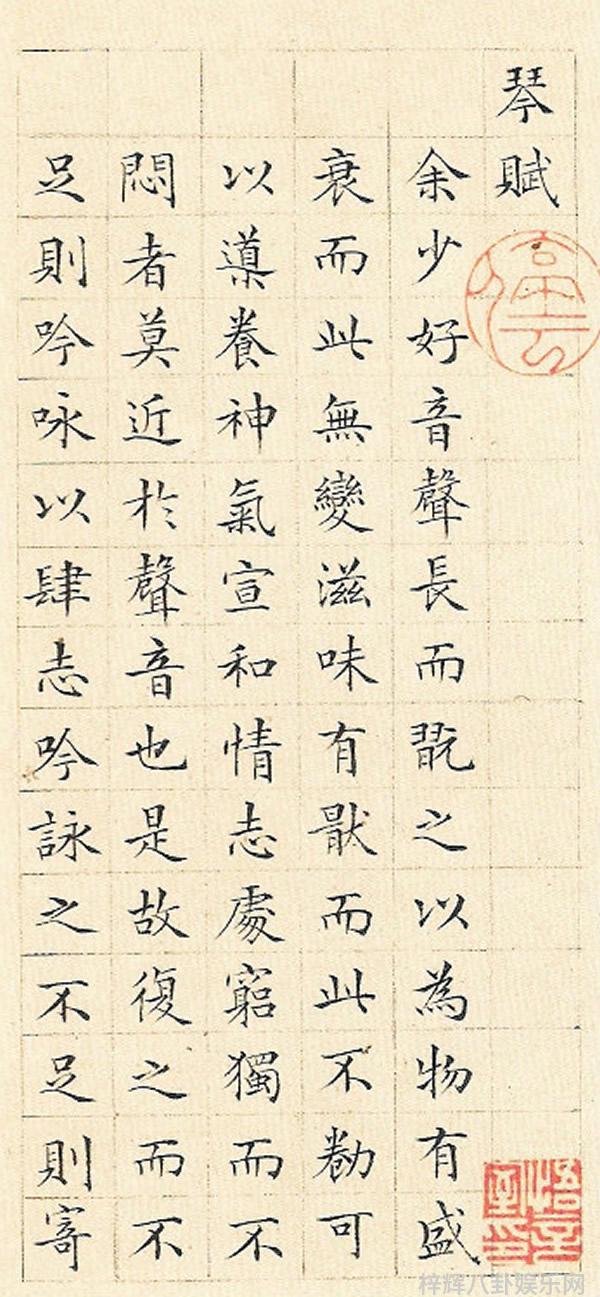 琴賦
余少好音聲長而翫之以為物有盛
衰而此無變滋味有猒而此不勌可
以導養神氣宣和情志處窮獨而不
悶者莫近於聲音也是故復之而不
足則吟咏以肆志吟詠之不足則寄
梓辉八卦娱乐网